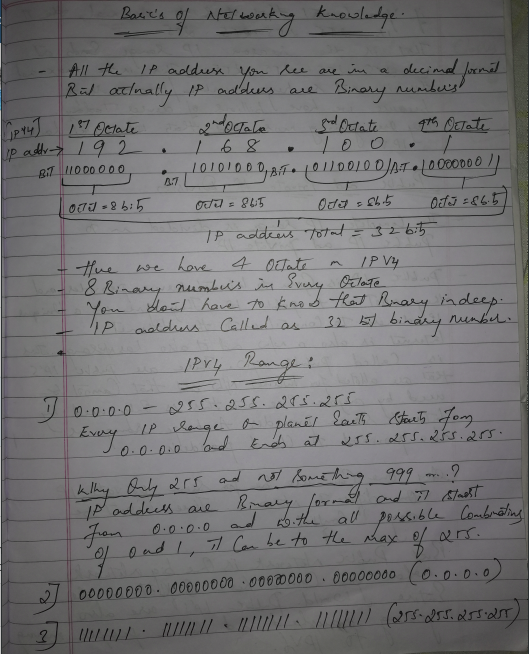 Basic's of Networking Knowledge.
- All the IP address you see are in a decimal format
But actually IP address are Binary numbers
[IPV4] 1st Octate 2nd Octate 3rd Octate 4th Octate
IP addr → 192 . 168 . 100 . 1
BIT 11000000 . BIT 10101000 BIT . 01100100 BIT . 10000001
Octet = 8bits Octet = 8bits Octet = 8bits Octet = 8bits
IP address Total = 32 bits
- Here we have 4 Octate in IPV4
- 8 Binary numbers in Every Octate
- You don't have to know that Binary in deep.
- IP address Called as 32 bit binary number.
IPV4 Range:
1] 0.0.0.0 - 255.255.255.255
Every IP range on planet Earth starts from
0.0.0.0 and Ends at 255.255.255.255.
Why Only 255 and not Something 999 ...?
IP address are Binary format and it start
from 0.0.0.0 and the all possible Combination
of 0 and 1, it Can be to the max of 255.
2] 00000000.00000000.00000000.00000000 (0.0.0.0)
3] 11111111.11111111.11111111.11111111 (255.255.255.255)